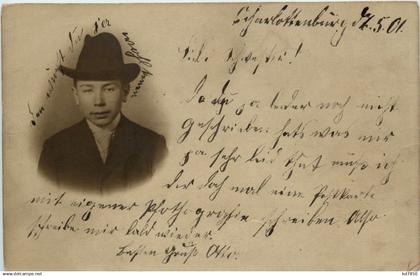 Charlottenburg d 2.5.01.
Liebe Schwester!
Da du ja leider noch nicht
geschrieben hats was mir
ja sehr leid thut muß ich
dir doch mal eine Postkarte
mit eigener Photografie schreiben. Also
schreibe mir bald wieder.
Besten Gruß Otto.